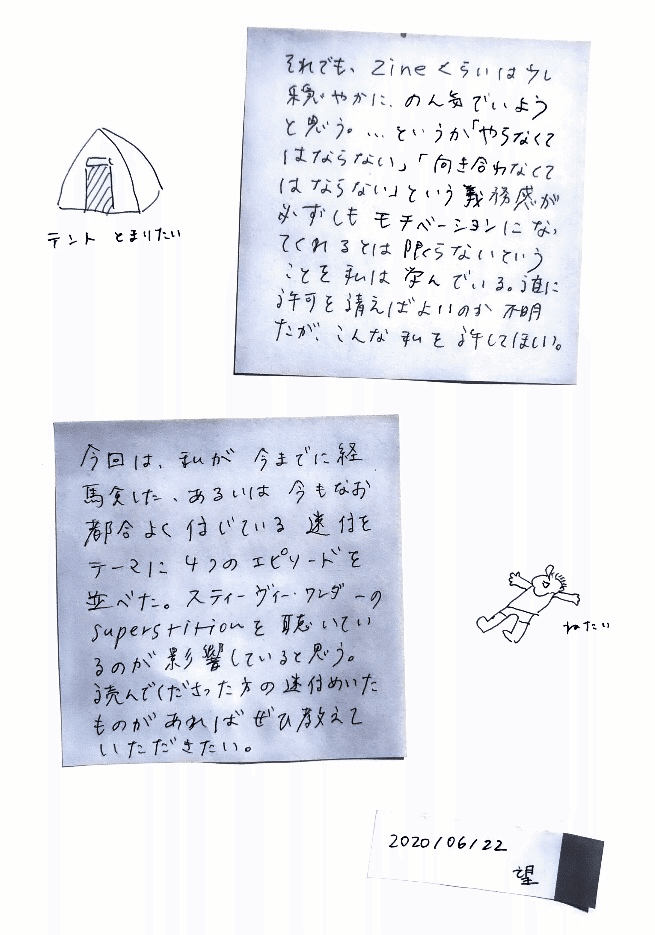 それでも、Zineくらいは少し
穏やかに、のん気でいよう
と思う。…というか「やらなくて
はならない」「向き合わなくて
はならない」という義務感が
必ずしもモチベーションになっ
てくれるとは限らないという
ことを私は学んでいる。誰に
許可を請えばよいのか不明
だが、こんな私を許してほしい。
テント とまりたい
今回は、私が今までに経
験した、あるいは今もなお
都合よく信じている迷信を
テーマに4つのエピソードを
並べた。スティーヴィー・ワンダーの
superstitionを聴いてい
るのが影響していると思う。
読んでくださった方の迷信めいた
ものがあればぜひ教えて
いただきたい。
ねたい
2020/06/22
望